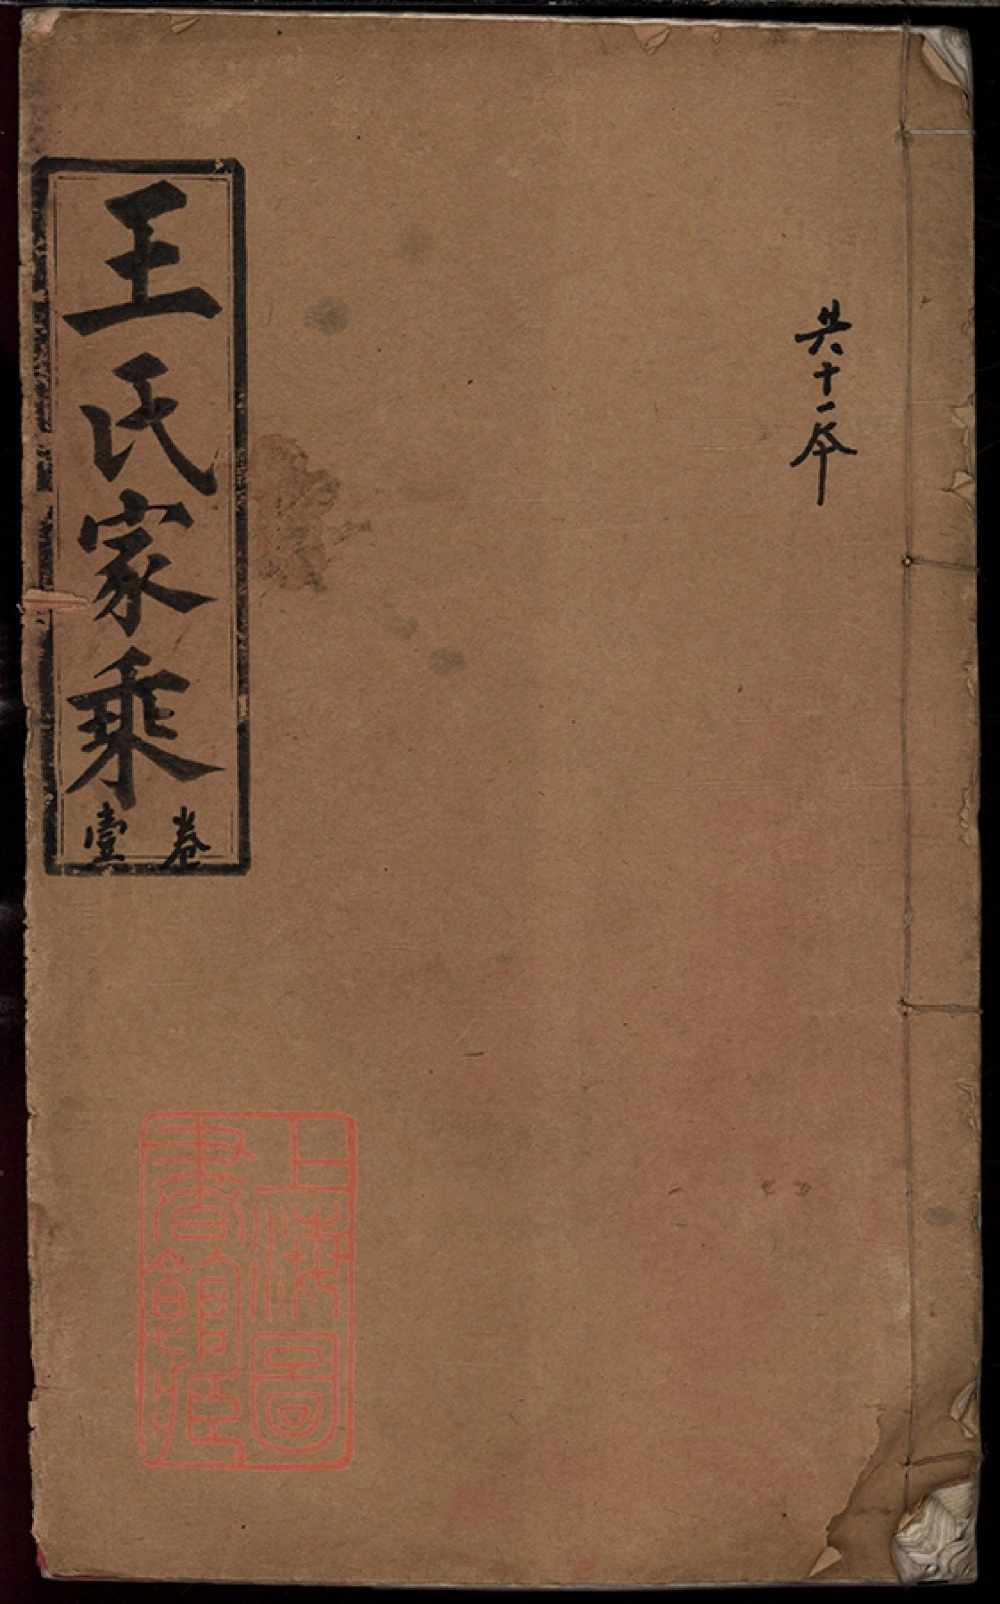 共十一本
王氏家乘
卷壹
上海圖
書館藏